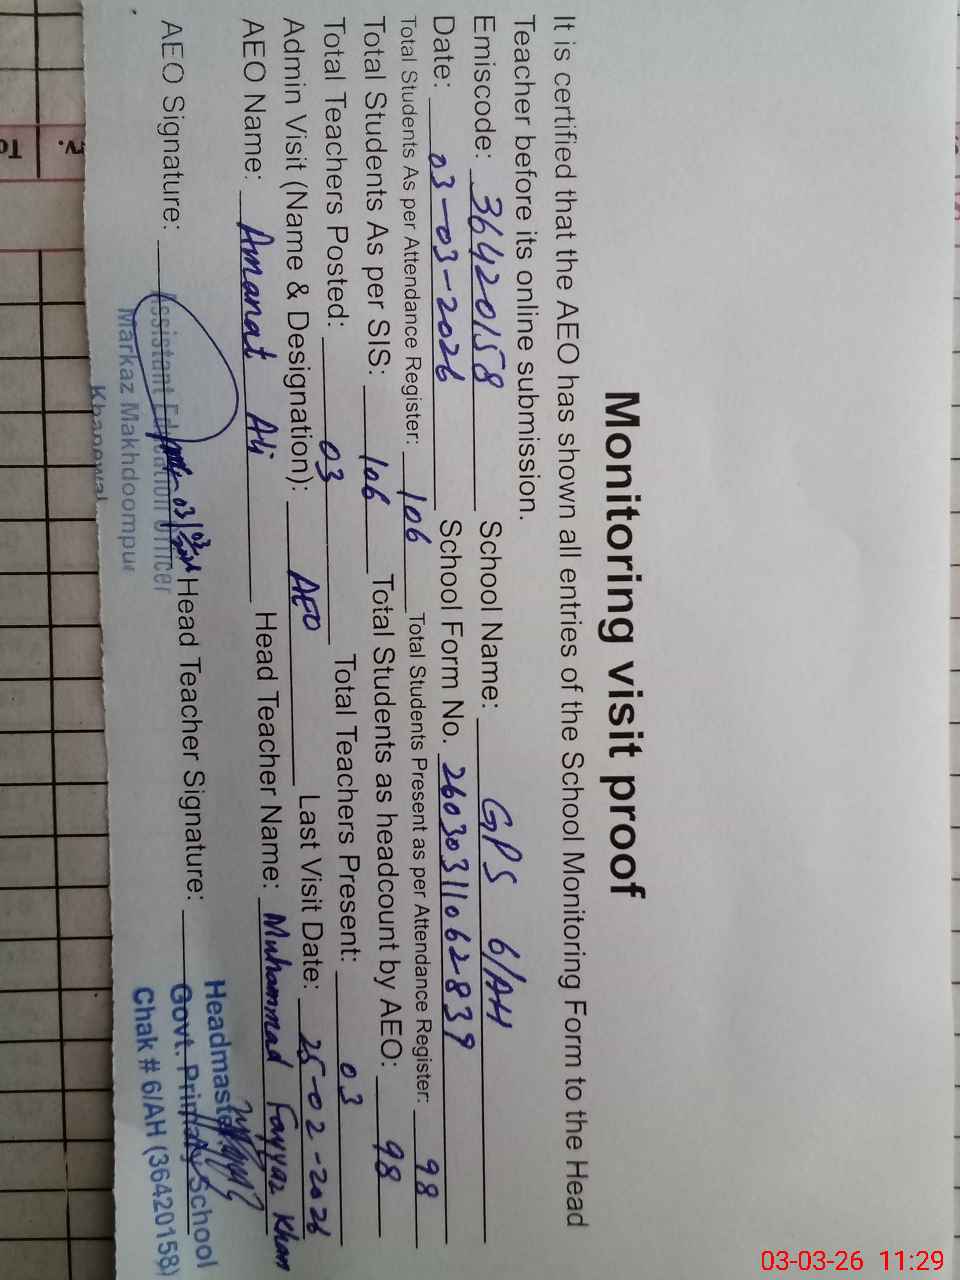 Monitoring visit proof
It is certified that the AEO has shown all entries of the School Monitoring Form to the Head
Teacher before its online submission.
Emiscode: 36420158 School Name: GPS 6/AH
Date: 03-03-2026 School Form No. 26030311062839
Total Students As per Attendance Register: 106 Total Students Present as per Attendance Register: 98
Total Students As per SIS: 106 Total Students as headcount by AEO: 98
Total Teachers Posted: 03 Total Teachers Present: 03
Admin Visit (Name & Designation): AEO Last Visit Date: 25-02-2026
AEO Name: Amanat Ali Head Teacher Name: Muhammad Fayyaz Khan
AEO Signature: Head Teacher Signature:
Assistant Education Officer
Markaz Makhdoompur
Khanewal
Headmaster
Govt. Primary School
Chak # 6/AH (36420158)
03-03-26 11:29